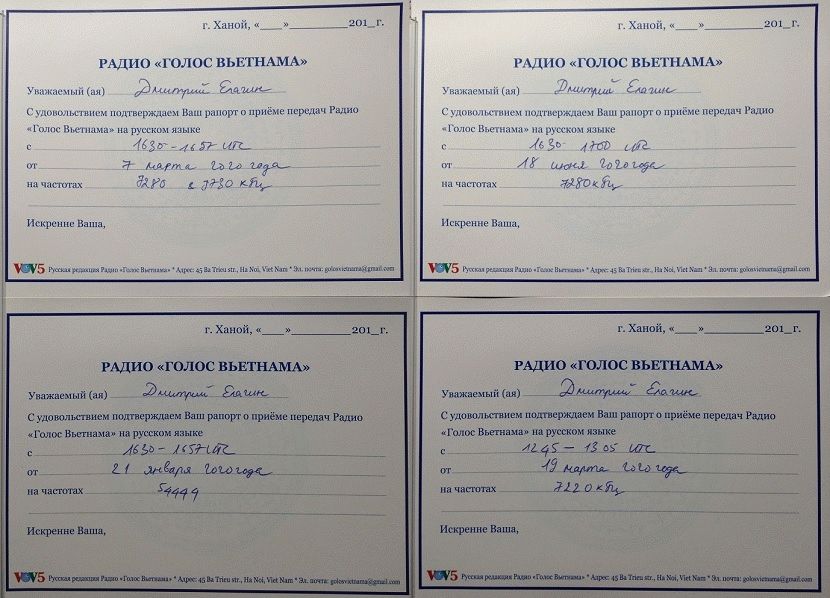 г. Ханой, «___»________201_г.
РАДИО «ГОЛОС ВЬЕТНАМА»
Уважаемый (ая) Дмитрий Елагин
С удовольствием подтверждаем Ваш рапорт о приёме передач Радио
«Голос Вьетнама» на русском языке
с 1630 - 1657 UTC
от 7 марта 2020 года
на частотах 7280 и 9730 кГц
Искренне Ваша,
VOV5 Русская редакция Радио «Голос Вьетнама» * Адрес: 45 Ba Trieu str., Ha Noi, Viet Nam * Эл. почта: golosvietnama@gmail.com
г. Ханой, «___»________201_г.
РАДИО «ГОЛОС ВЬЕТНАМА»
Уважаемый (ая) Дмитрий Елагин
С удовольствием подтверждаем Ваш рапорт о приёме передач Радио
«Голос Вьетнама» на русском языке
с 1630- 1700 UTC
от 18 июня 2020 года
на частотах 7280 кГц
Искренне Ваша,
VOV5 Русская редакция Радио «Голос Вьетнама» * Адрес: 45 Ba Trieu str., Ha Noi, Viet Nam * Эл. почта: golosvietnama@gmail.com
г. Ханой, «___»________201_г.
РАДИО «ГОЛОС ВЬЕТНАМА»
Уважаемый (ая) Дмитрий Елагин
С удовольствием подтверждаем Ваш рапорт о приёме передач Радио
«Голос Вьетнама» на русском языке
с 1630 - 1657 UTC
от 21 января 2020 года
на частотах 54444
Искренне Ваша,
VOV5 Русская редакция Радио «Голос Вьетнама» * Адрес: 45 Ba Trieu str., Ha Noi, Viet Nam * Эл. почта: golosvietnama@gmail.com
г. Ханой, «___»________201_г.
РАДИО «ГОЛОС ВЬЕТНАМА»
Уважаемый (ая) Дмитрий Елагин
С удовольствием подтверждаем Ваш рапорт о приёме передач Радио
«Голос Вьетнама» на русском языке
с 1245 - 1305 UTC
от 19 марта 2020 года
на частотах 7220 кГц
Искренне Ваша,
VOV5 Русская редакция Радио «Голос Вьетнама» * Адрес: 45 Ba Trieu str., Ha Noi, Viet Nam * Эл. почта: golosvietnama@gmail.com